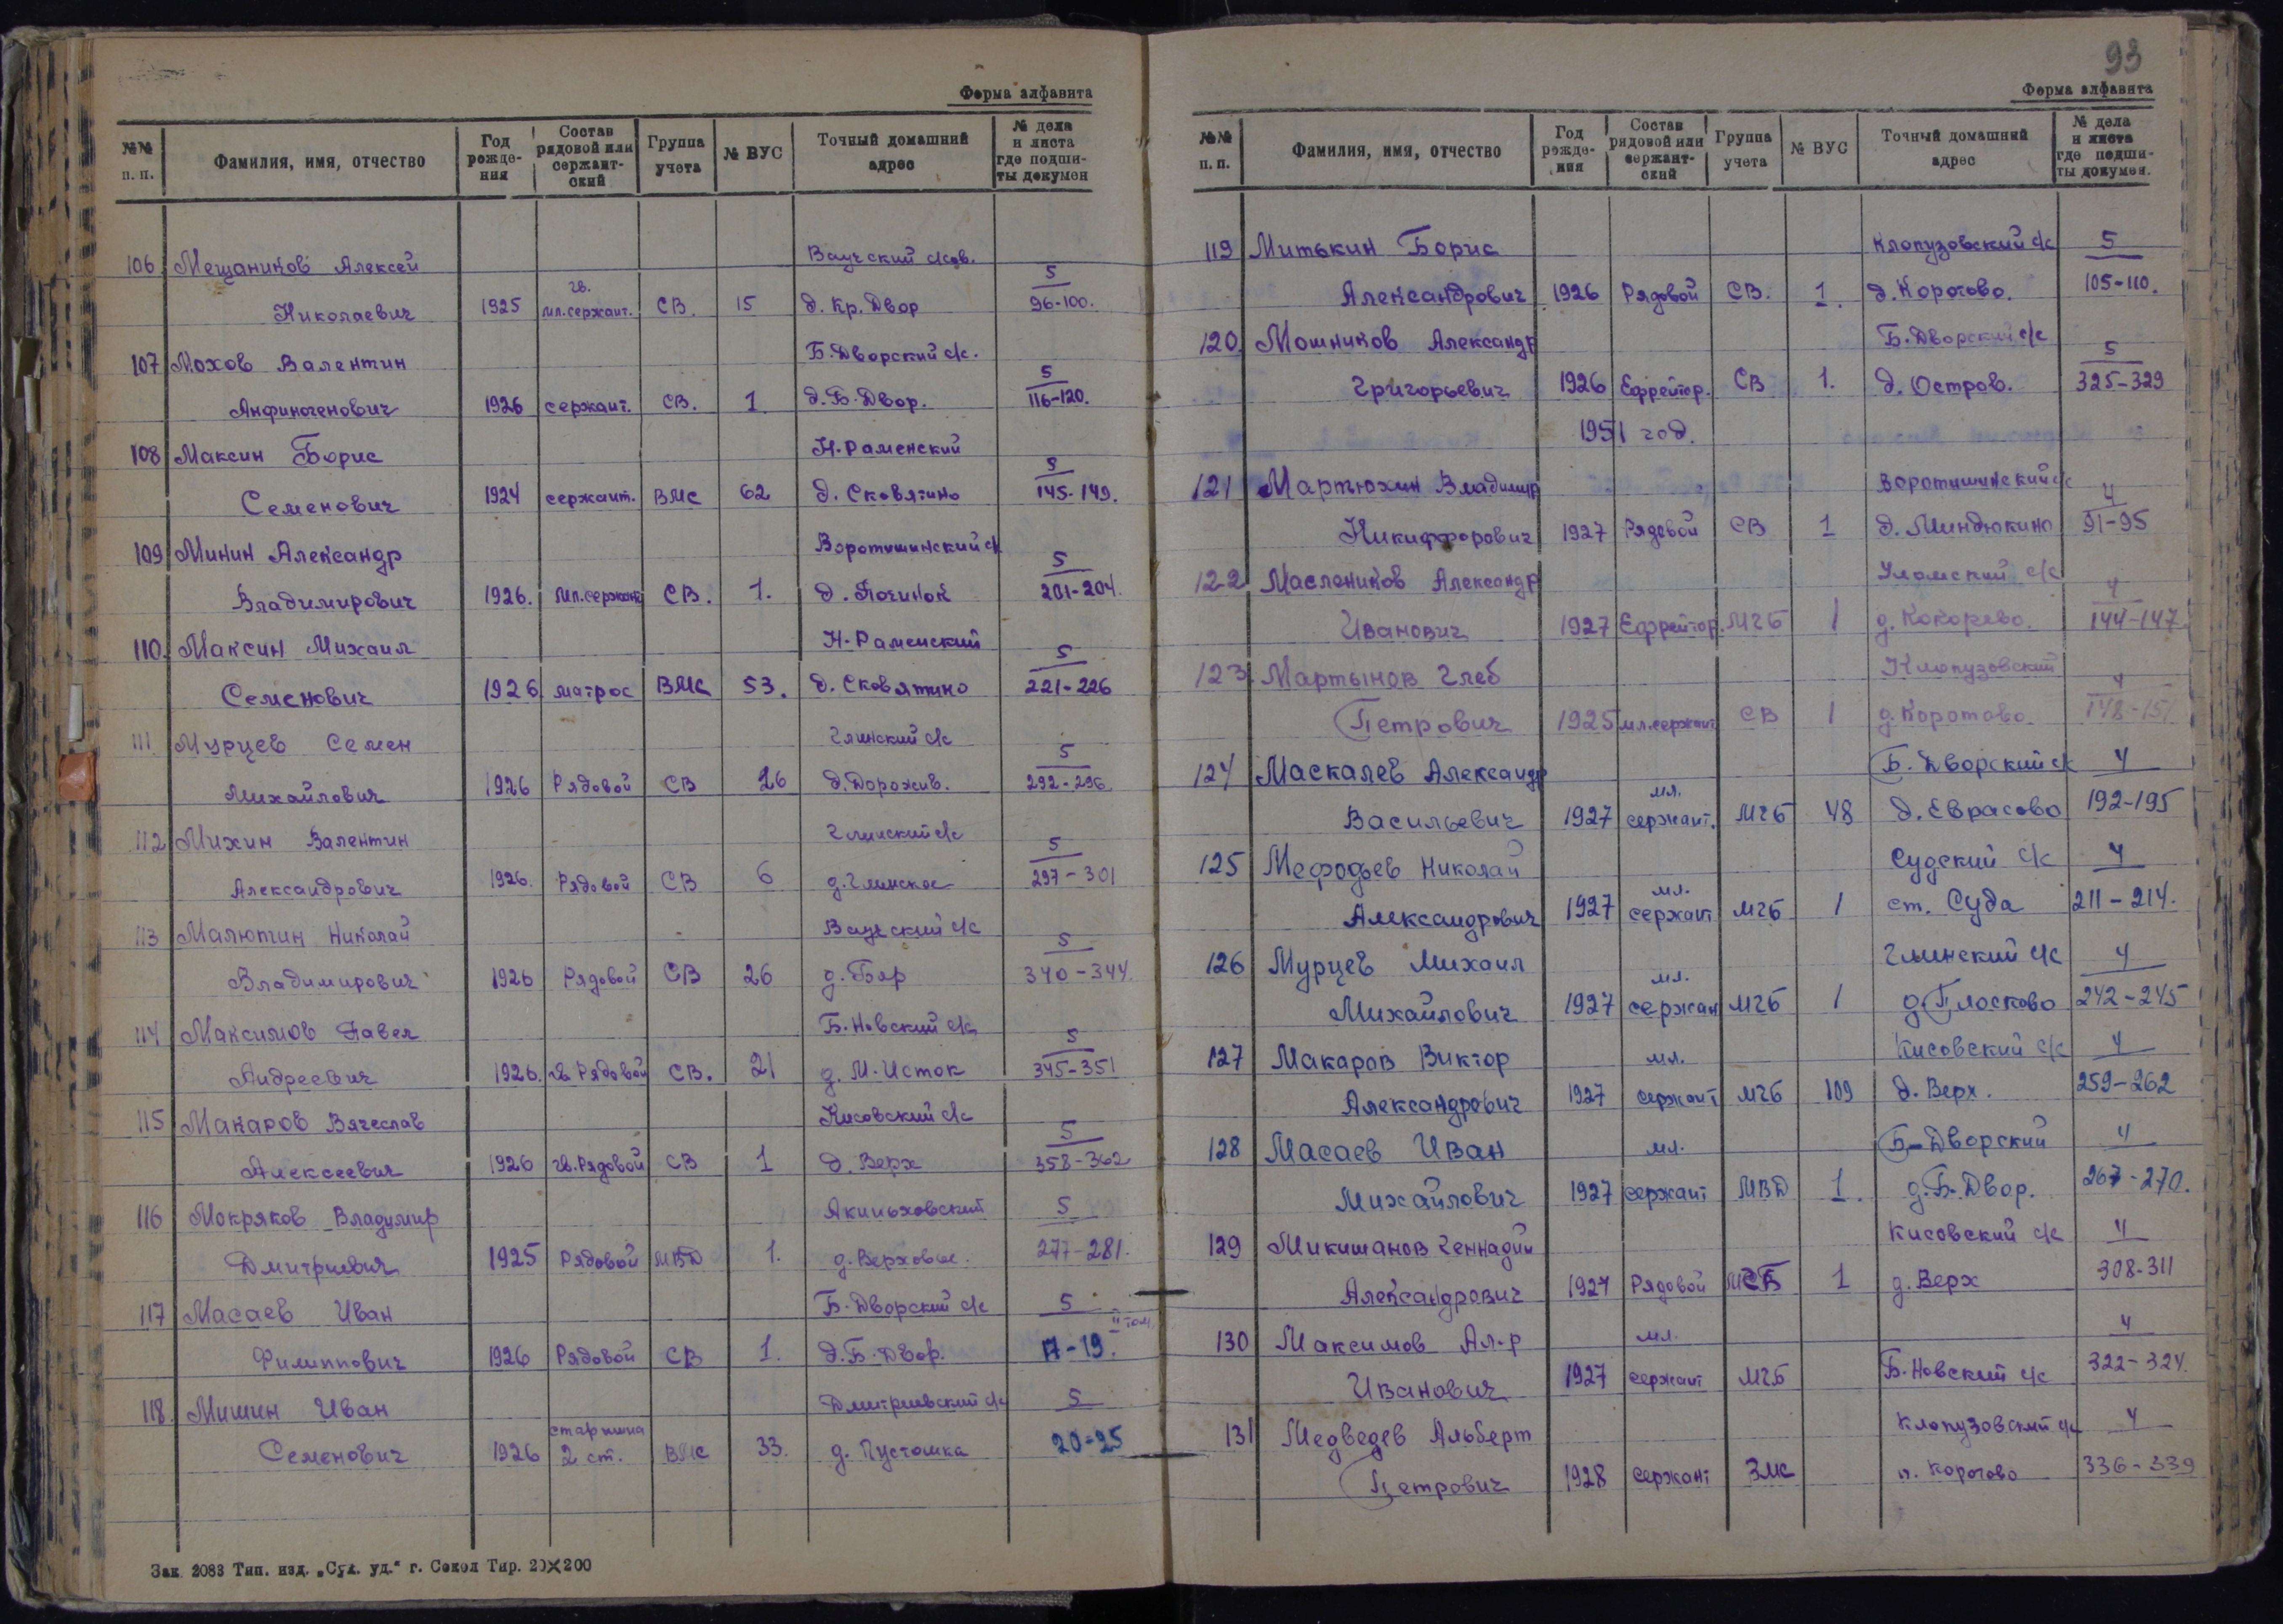 Форма алфавита
№№ п. п. Фамилия, имя, отчество Год рожде- ния Состав рядовой или сержант- ский Группа учета № ВУС Точный домашний адрес № дела и листа где подши- ты докумен
106 Мещаников Алексей Ваучский с/сов. 5
Николаевич 1925 гв. мл. сержант. СВ. 15 д. Кр. Двор 96-100.
107 Мохов Валентин Б. Дворский с/с. 5
Анфиногенович 1926 сержант. СВ. 1 д. Б. Двор. 116-120.
108 Максин Борис Н-Раменский 5
Семенович 1924 сержант. ВМС 62 д. Сковятино 145-149.
109 Минин Александр Воротишинский с/с 5
Владимирович 1926. мл. сержант СВ. 1. д. Починок 201-204.
110. Максин Михаил Н-Раменский 5
Семенович 1926 матрос ВМС 53. д. Сковятино 221-226
111. Мурцев Семен Глинский с/с 5
Михайлович 1926 Рядовой СВ 26 д. Дорожив. 292-296
112 Михин Валентин Глинский с/с 5
Александрович 1926. Рядовой СВ 6 д. Глинское 297-301
113 Малютин Николай Ваучский с/с 5
Владимирович 1926 Рядовой СВ 26 д. Бяр 340-344.
114 Максимов Павел Б. Новский с/с 5
Андреевич 1926. гв. Рядовой СВ. 21 д. М. Исток 345-351
115 Макаров Вячеслав Кисовский с/с 5
Алексеевич 1926 гв. Рядовой СВ 1 д. Верх 358-362
116 Мокряков Владимир Акиньховский 5
Дмитриевич 1925 Рядовой МВД 1. д. Верховье. 277-281.
117 Масаев Иван Б. Дворский с/с 5 II том
Филиппович 1926 Рядовой СВ 1. д. Б. Двор. 17-19.
118. Мишин Иван Дмитриевский с/с 5
Семенович 1926 старшина 2 ст. ВМС 33. д. Пустошка 20-25
Зак. 2083 Тип. изд. „Сух. уд.“ г. Сокол Тир. 20×200
93
Форма алфавита
№№ п. п. Фамилия, имя, отчество Год рожде- ния Состав рядовой или сержант- ский Группа учета № ВУС Точный домашний адрес № дела и листа где подши- ты докумен.
119 Митькин Борис Клопузовский с/с 5
Александрович 1926 Рядовой СВ. 1. д. Коротово. 105-110.
120. Мошников Александр Б. Дворский с/с 5
Григорьевич 1926 Ефрейтор. СВ 1. д. Остров. 325-329
1951 год.
121 Мартюхин Владимир Воротишинский с/с 4
Никифорович 1927 Рядовой СВ 1 д. Миндюкино 91-95
122 Маслеников Александр Уломский с/с 4
Иванович 1927 Ефрейтор. МГБ 1 д. Кокорево. 144-147.
123. Мартынов Глеб Клопузовский 4
Петрович 1925 мл. сержант СВ 1 д. Коротово. 148-151
124 Маскалев Александр Б. Дворский с/с 4
Васильевич 1927 мл. сержант. МГБ 48 д. Еврасово 192-195
125 Мефодьев Николай Судский с/с 4
Александрович 1927 мл. сержант МГБ 1 ст. Суда 211-214.
126 Мурцев Михаил Глинский с/с 4
Михайлович 1927 мл. сержан МГБ 1 д. Плосково 242-245
127 Макаров Виктор мл. Кисовский с/с 4
Александрович 1927 сержант МГБ 109 д. Верх. 259-262
128 Масаев Иван мл. Б-Дворский 4
Михайлович 1927 сержант МВД 1. д. Б. Двор. 267-270.
129 Микишанов Геннадий Кисовский с/с 4
Александрович 1927 Рядовой МГБ 1 д. Верх 308-311
130 Максимов Ал-р мл. 4
Иванович 1927 сержант МГБ Б. Новский с/с 322-324.
131 Медведев Альберт Клопузовский с/с 4
Петрович 1928 сержант ВМС п. Коротово 336-339